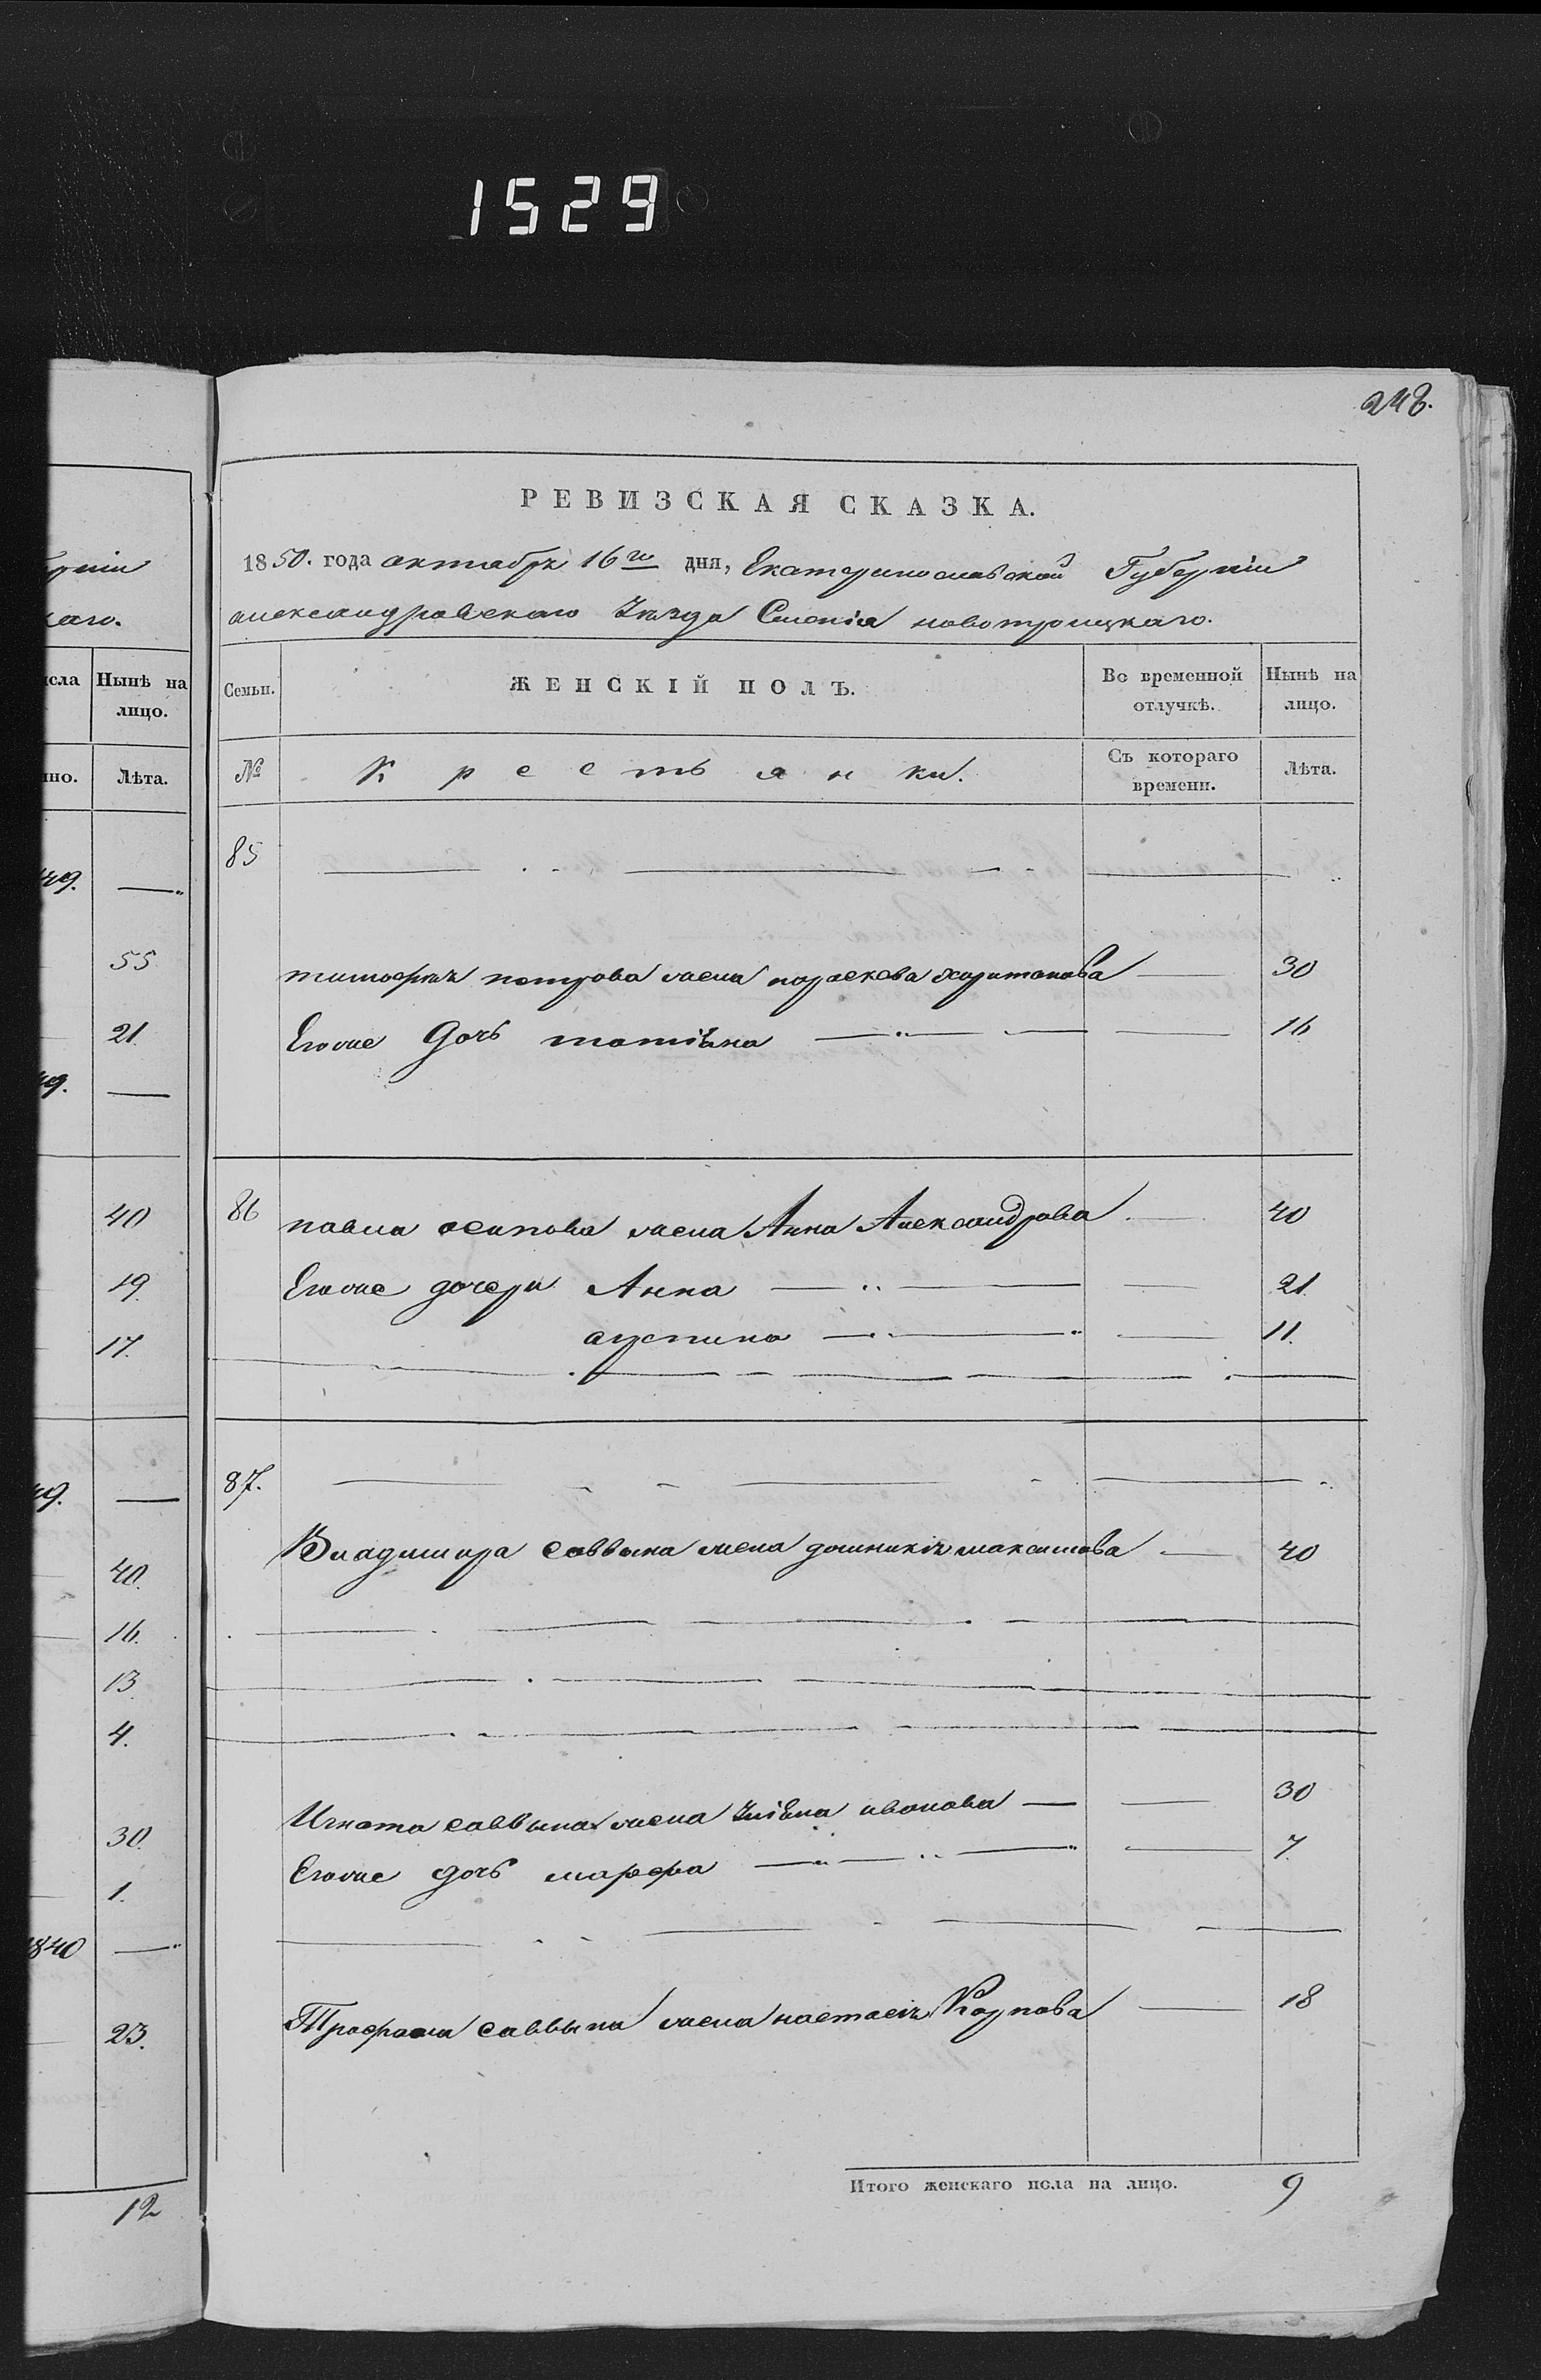 1529
248.
РЕВИЗСКАЯ СКАЗКА.
1850. года октабря 16го дня, Екатеринославской Губерніи
александровскаго Уѣзда Силенія новотроицкаго.
Семьи. ЖЕНСКІЙ ПОЛЪ. Во временной отлучкѣ. Нынѣ на лицо.
№ Крестьянки. Съ котораго времени. Лѣта.
85
тимофѣя петрова жена параскева харитонова 30
Егоже дочь татіяна 16
86 павла осипова жена Анна Александрова 40
Егоже дочери Анна 21
агрипина 11.
87.
Владимира саввина жена домникія максимова 40
Игната саввина жена Уліяна иванова 30
Егоже дочь марфа 7.
Трофима саввина жена настасія Карпова 18
Итого женскаго пола на лицо. 9
ерніи
каго.
исла Нынѣ на лицо.
нно. Лѣта.
49.
55
21.
49.
40
19.
17.
49.
40.
16.
13
4.
30.
1.
1840
23.
12